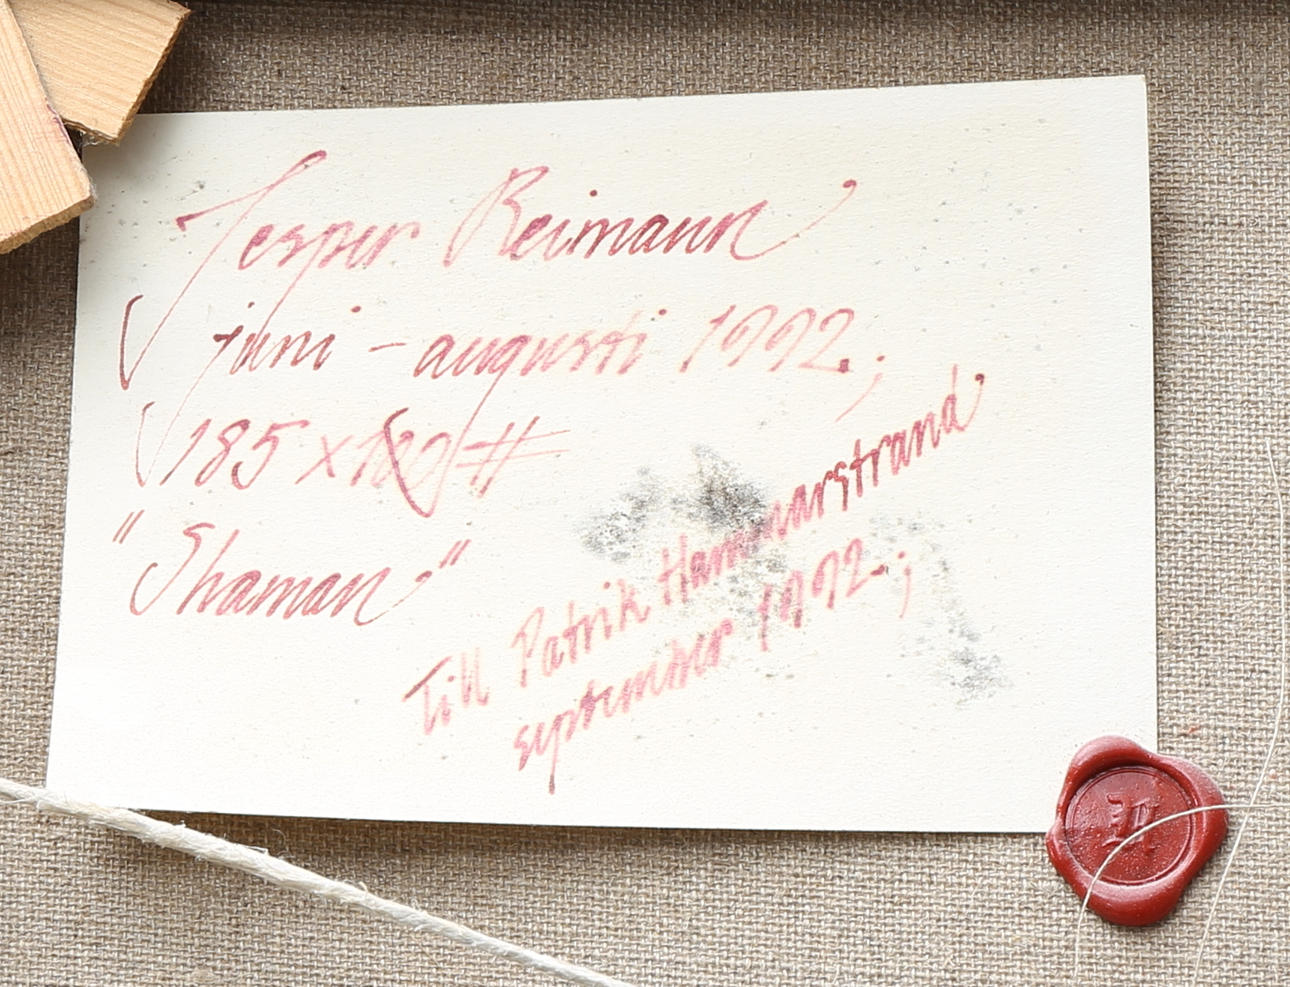 Jesper Reimann
juni - augusti 1992.;
185 x 120 #
"Shaman"
Till Patrik Hammarstrand
september 1992.;
R